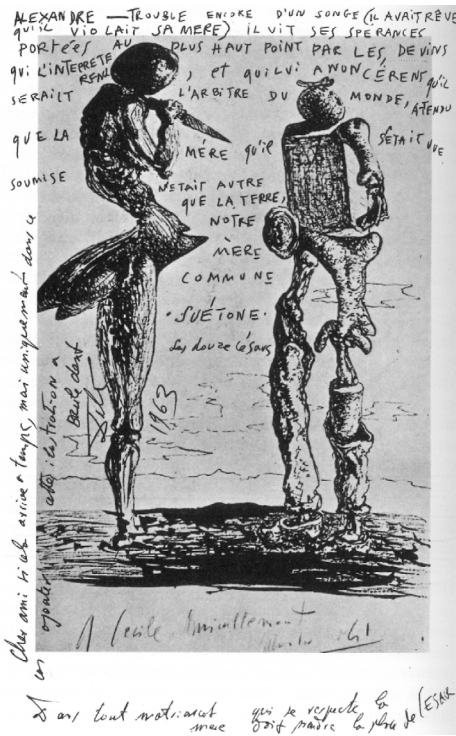 ALEXANDRE — TROUBLE ENCORE D'UN SONGE (IL AVAIT RÊVE
qu'il VIOLAIT SA MERE) IL VIT SES SPERANCES
PORTÉES AU PLUS HAUT POINT PAR LES DEVINS
qui L'INTERPRETE
RENT, et qui LUI ANONCÉRENT qu'il
SERAIT L'ARBITRE DU MONDE, ATENDU
QUE LA MÉRE qu'il S'ETAIT VUE
SOUMISE N'ETAIT AUTRE
QUE LA TERRE,
NOTRE
MÈRE
COMMUNE
• SUÉTONE •
Les douze Césars
1963
Cher ami si cela arrive a temps, mais uniquement dans ce
cas ajouter cette ilustration a
A Cecile, Amicallement
Dans tout matriarcat qui se respecte la
mere doit prendre la place de CESAR